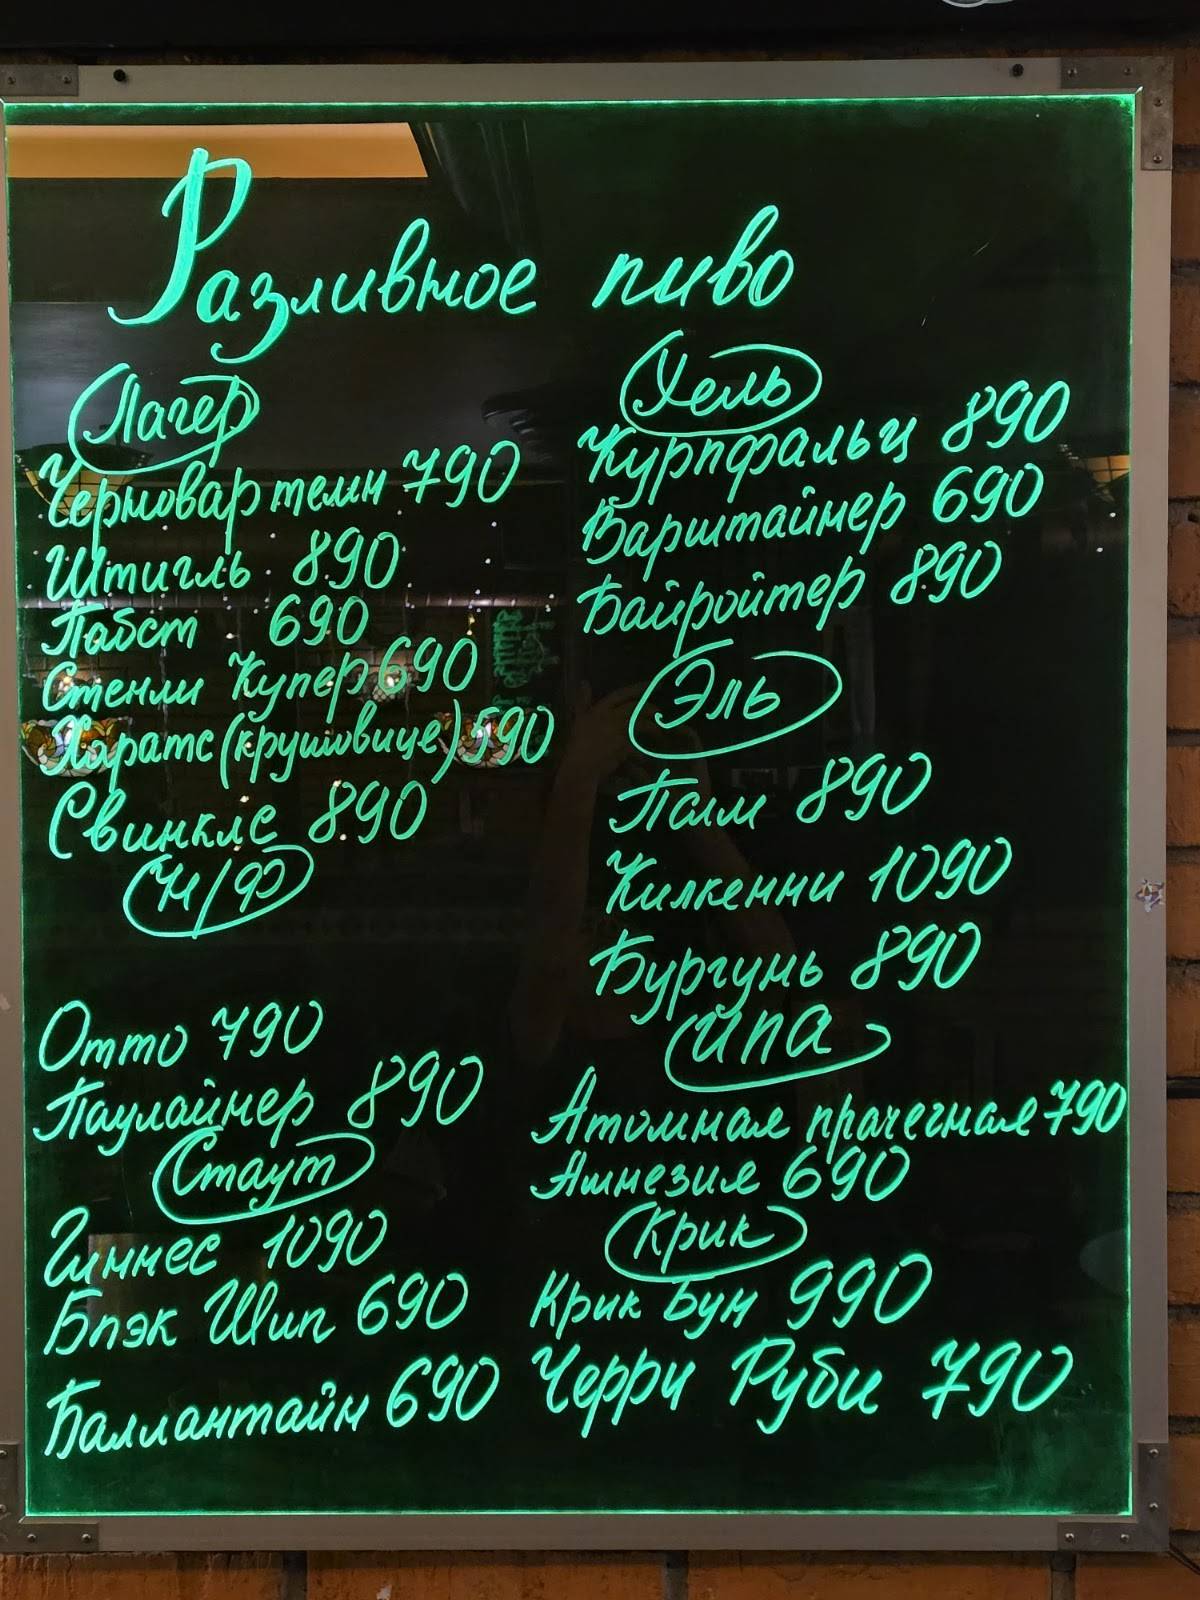 Разливное пиво
Лагер
Черновар темн 790
Штигль 890
Пабст 690
Стенли Купер 690
Харатс (крушовице) 590
Свинклс 890
Н/Ф
Отто 790
Паулайнер 890
Стаут
Гиннес 1090
Блэк Шип 690
Баллантайн 690
Хель
Курпфальц 890
Варштайнер 690
Байройтер 890
Эль
Палм 890
Килкенни 1090
Бургунь 890
ИПА
Атомная прачечная 790
Амнезия 690
Крик
Крик Бун 990
Черри Руби 790